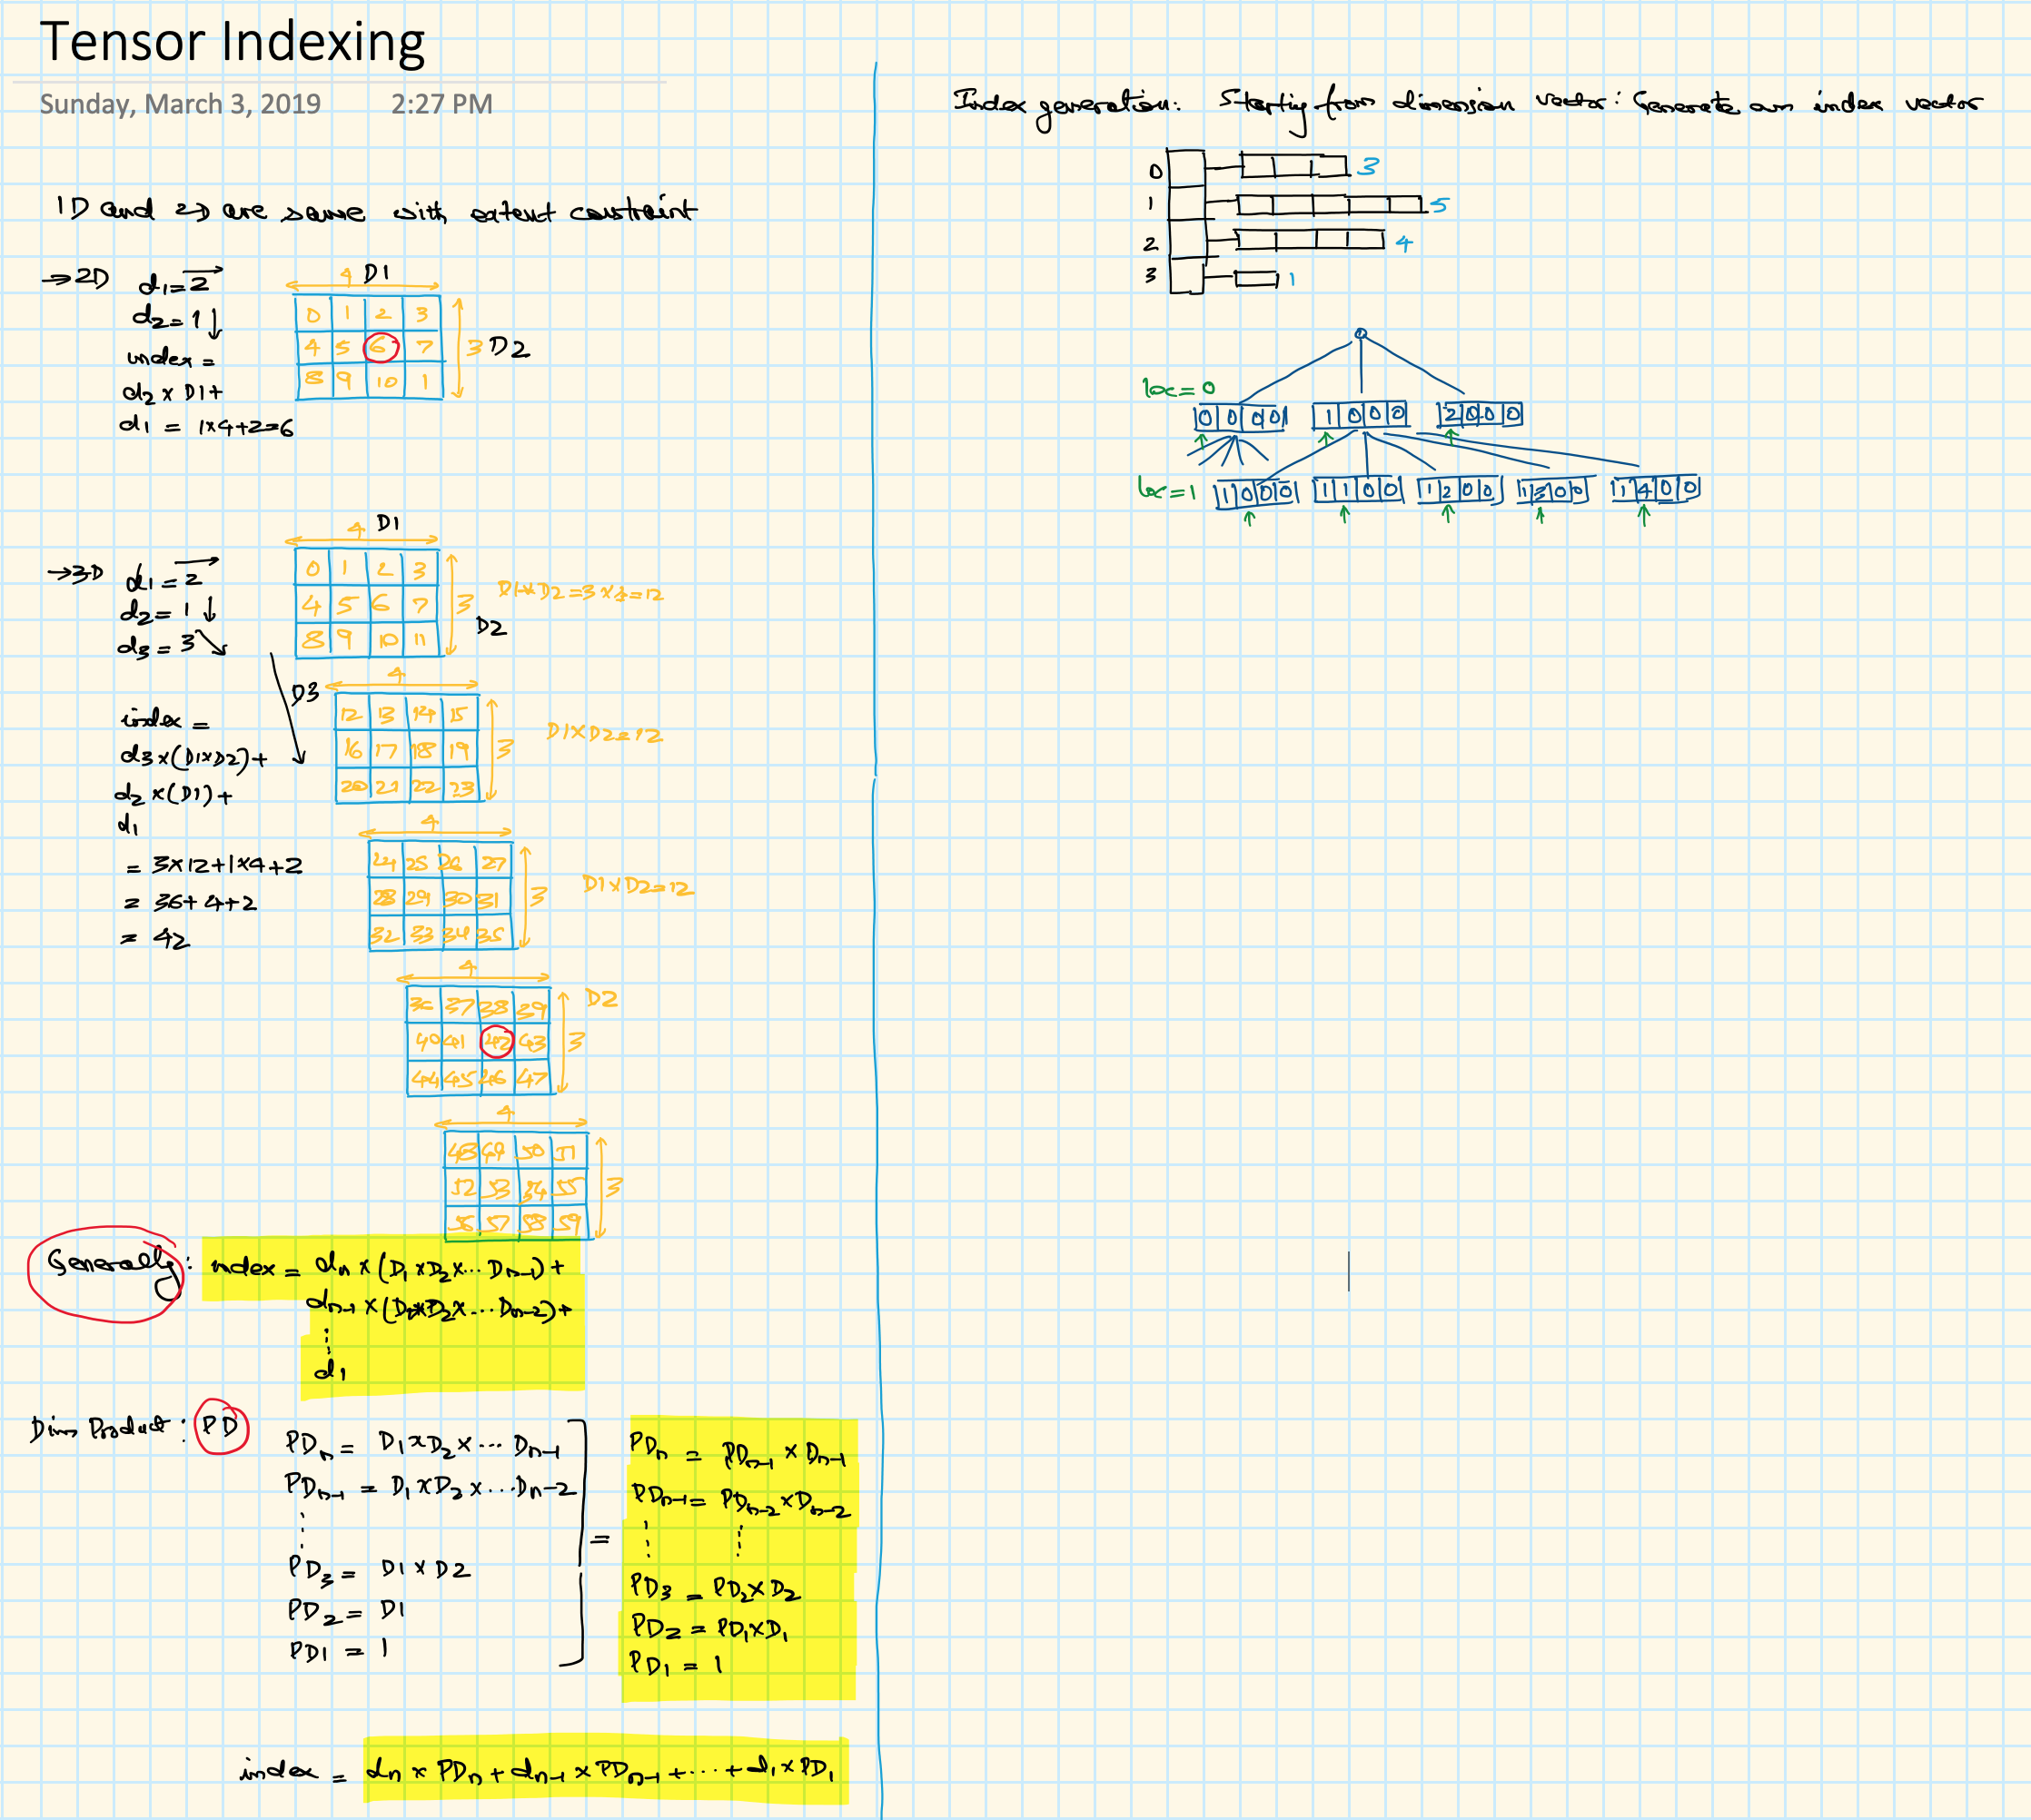 Tensor Indexing
Sunday, March 3, 2019 2:27 PM
1D and 2D are same with extent constraint
→2D d1=2
d2=1
index =
d2 x D1+
d1 = 1x4+2=6
4 D1
0 1 2 3
4 5 6 7
8 9 10 1
3 D2
→3D d1=2
d2=1
d3=3
index =
d3x(D1xD2)+
d2x(D1)+
d1
= 3x12+1x4+2
= 36+4+2
= 42
4 D1
0 1 2 3
4 5 6 7
8 9 10 11
3 D2
D1xD2=3x4=12
D3
4
12 13 14 15
16 17 18 19
20 21 22 23
3
D1xD2=12
4
24 25 26 27
28 29 30 31
32 33 34 35
3
D1xD2=12
4
36 37 38 39
40 41 42 43
44 45 46 47
3
D2
4
48 49 50 51
52 53 54 55
56 57 58 59
3
Generally: index = dn x (D1 x D2 x ... Dn-1)+
dn-1 x (D1xD2x...Dn-2)+
⋮
d1
Dim Product: PD
PDn = D1xD2x...Dn-1
PDn-1 = D1xD2x...Dn-2
⋮
PD3 = D1xD2
PD2 = D1
PD1 = 1
=
PDn = PDn-1 x Dn-1
PDn-1 = PDn-2 x Dn-2
⋮ ⋮
PD3 = PD2 x D2
PD2 = PD1 x D1
PD1 = 1
index = dn x PDn + dn-1 x PDn-1 + ... + d1 x PD1
Index generation: Starting from dimension vector: Generate an index vector
0 3
1 5
2 4
3 1
loc=0
0 0 0 0 1 0 0 0 2 0 0 0
loc=1
1 0 0 0 1 1 0 0 1 2 0 0 1 3 0 0 1 4 0 0